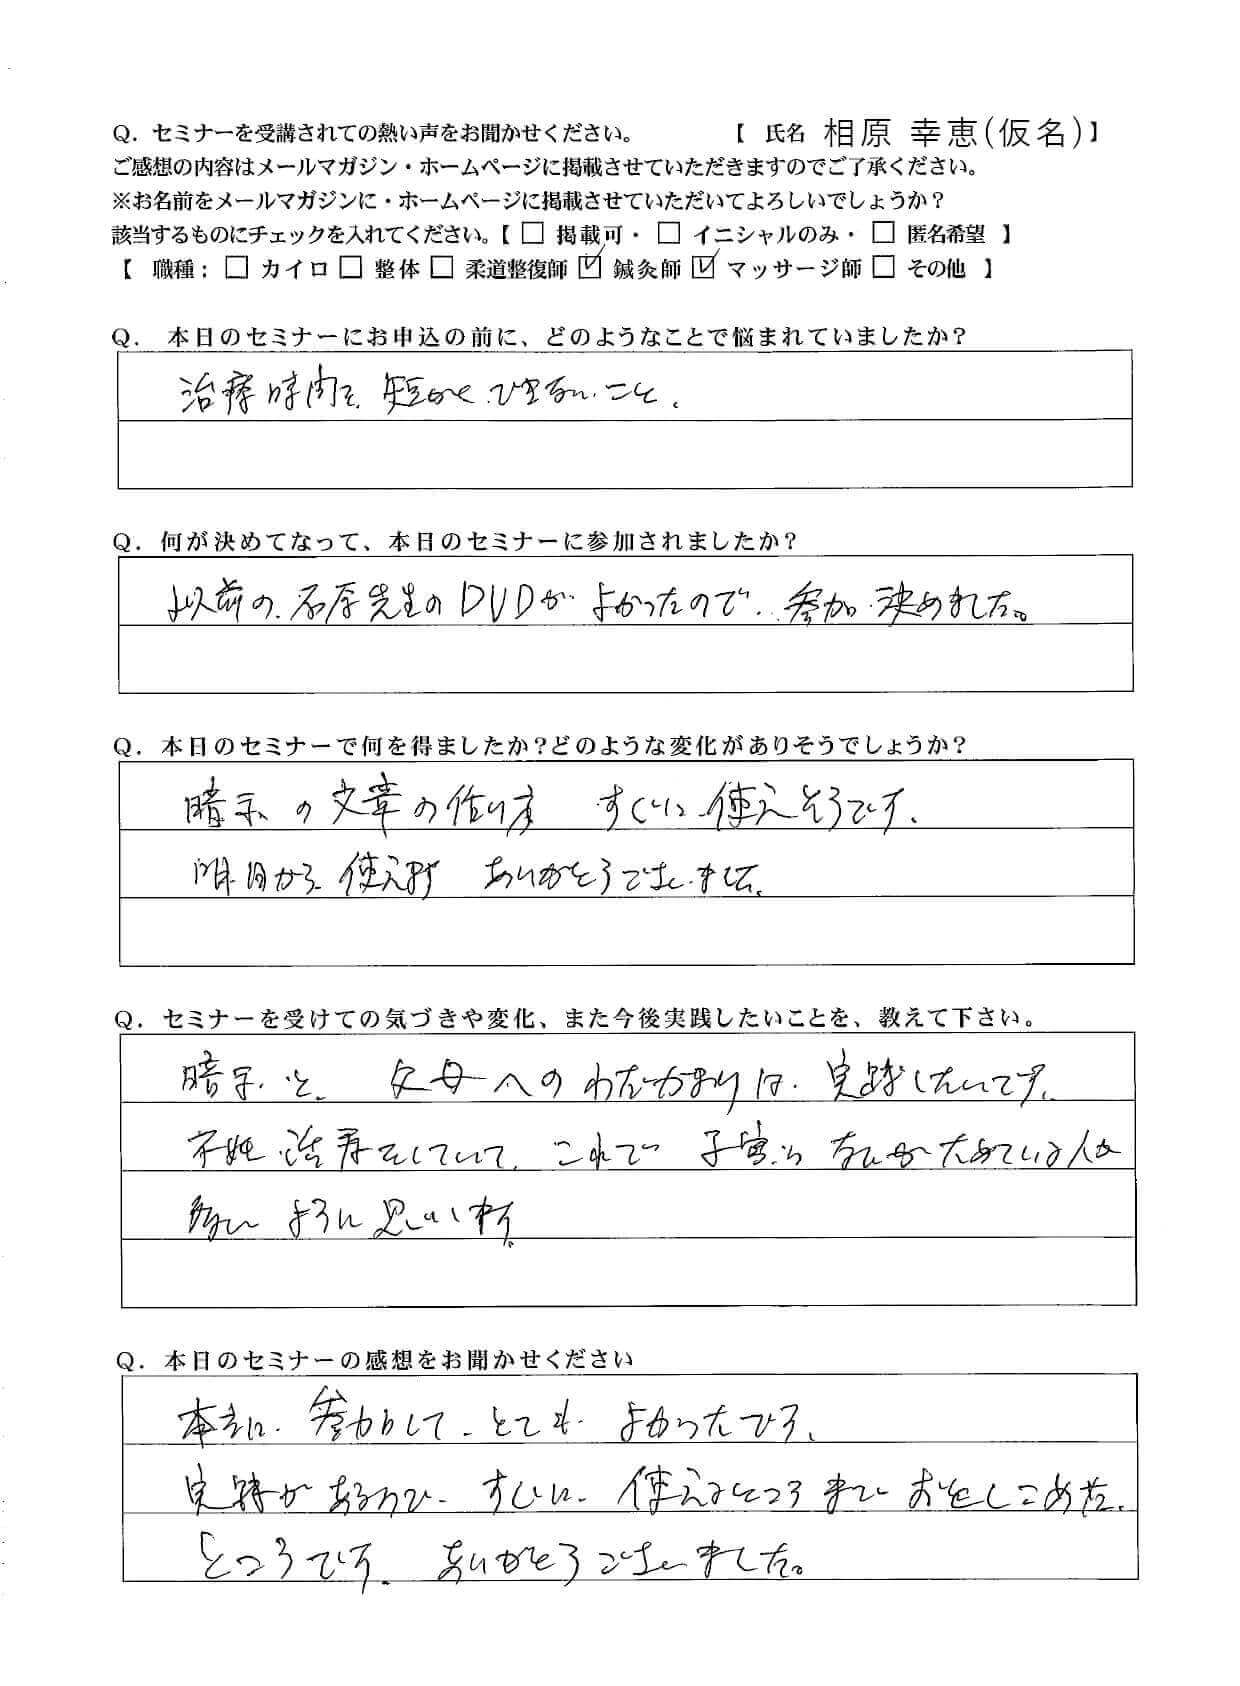 Q. セミナーを受講されての熱い声をお聞かせください。 【 氏名 相原 幸恵(仮名)】
ご感想の内容はメールマガジン・ホームページに掲載させていただきますのでご了承ください。
※お名前をメールマガジンに・ホームページに掲載させていただいてよろしいでしょうか?
該当するものにチェックを入れてください。【 □ 掲載可・ □ イニシャルのみ・ □ 匿名希望 】
【 職種: □ カイロ □ 整体 □ 柔道整復師 ☑ 鍼灸師 ☑ マッサージ師 □ その他 】
Q. 本日のセミナーにお申込の前に、どのようなことで悩まれていましたか?
治療時間を、短かくできないこと、
Q. 何が決めてなって、本日のセミナーに参加されましたか?
以前の、石原先生のDVDがよかったので、参加決めました。
Q. 本日のセミナーで何を得ましたか?どのような変化がありそうでしょうか?
暗示の文章の作り方 すぐに使えそうです、
明日から使えます ありがとうございました。
Q. セミナーを受けての気づきや変化、また今後実践したいことを、教えて下さい。
暗示と、父母へのわだかまりは、実践したいです、
不妊治療をしていて、これで子宮に ている人が
多いように思います。
Q. 本日のセミナーの感想をお聞かせください
本当に、参加して、とてもよかったです、
実践があるので、すぐに、使えるところまで おとしこめた、
ところです、ありがとうございました。